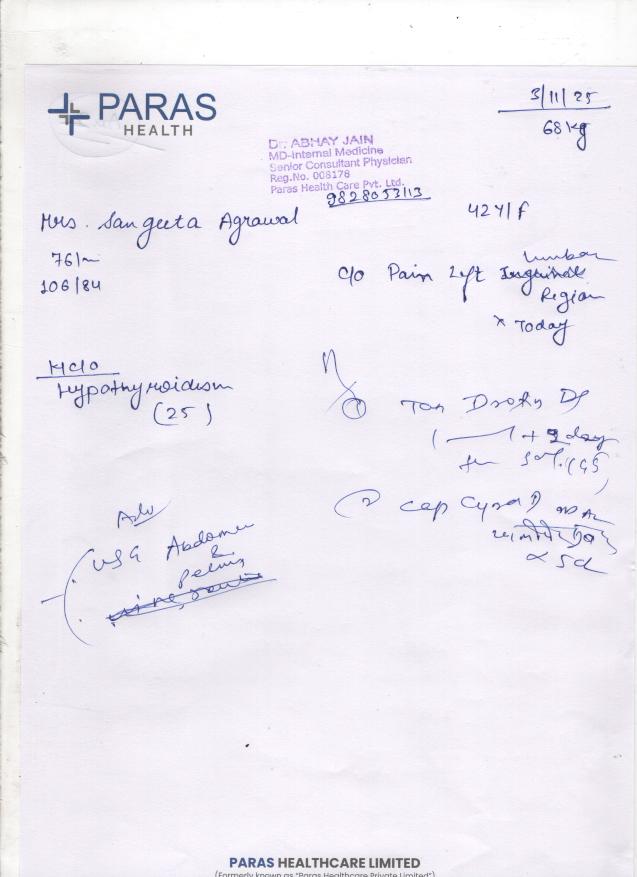 PARAS
HEALTH
3/11/25
68 kg
Dr. ABHAY JAIN
MD-Internal Medicine
Senior Consultant Physician
Reg.No. 008178
Paras Health Care Pvt. Ltd.
9828053113
Mrs. Sangeeta Agrawal
42Y/F
76/m
106/84
c/o Pain Left Lumbar
Region
x Today
H/C/O
Hypothyroidism
(25)
① Tab Drotin DS
② Cap
x 5d
Adv
USG Abdomen
&
Pelvis
PARAS HEALTHCARE LIMITED
(Formerly known as "Paras Healthcare Private Limited")